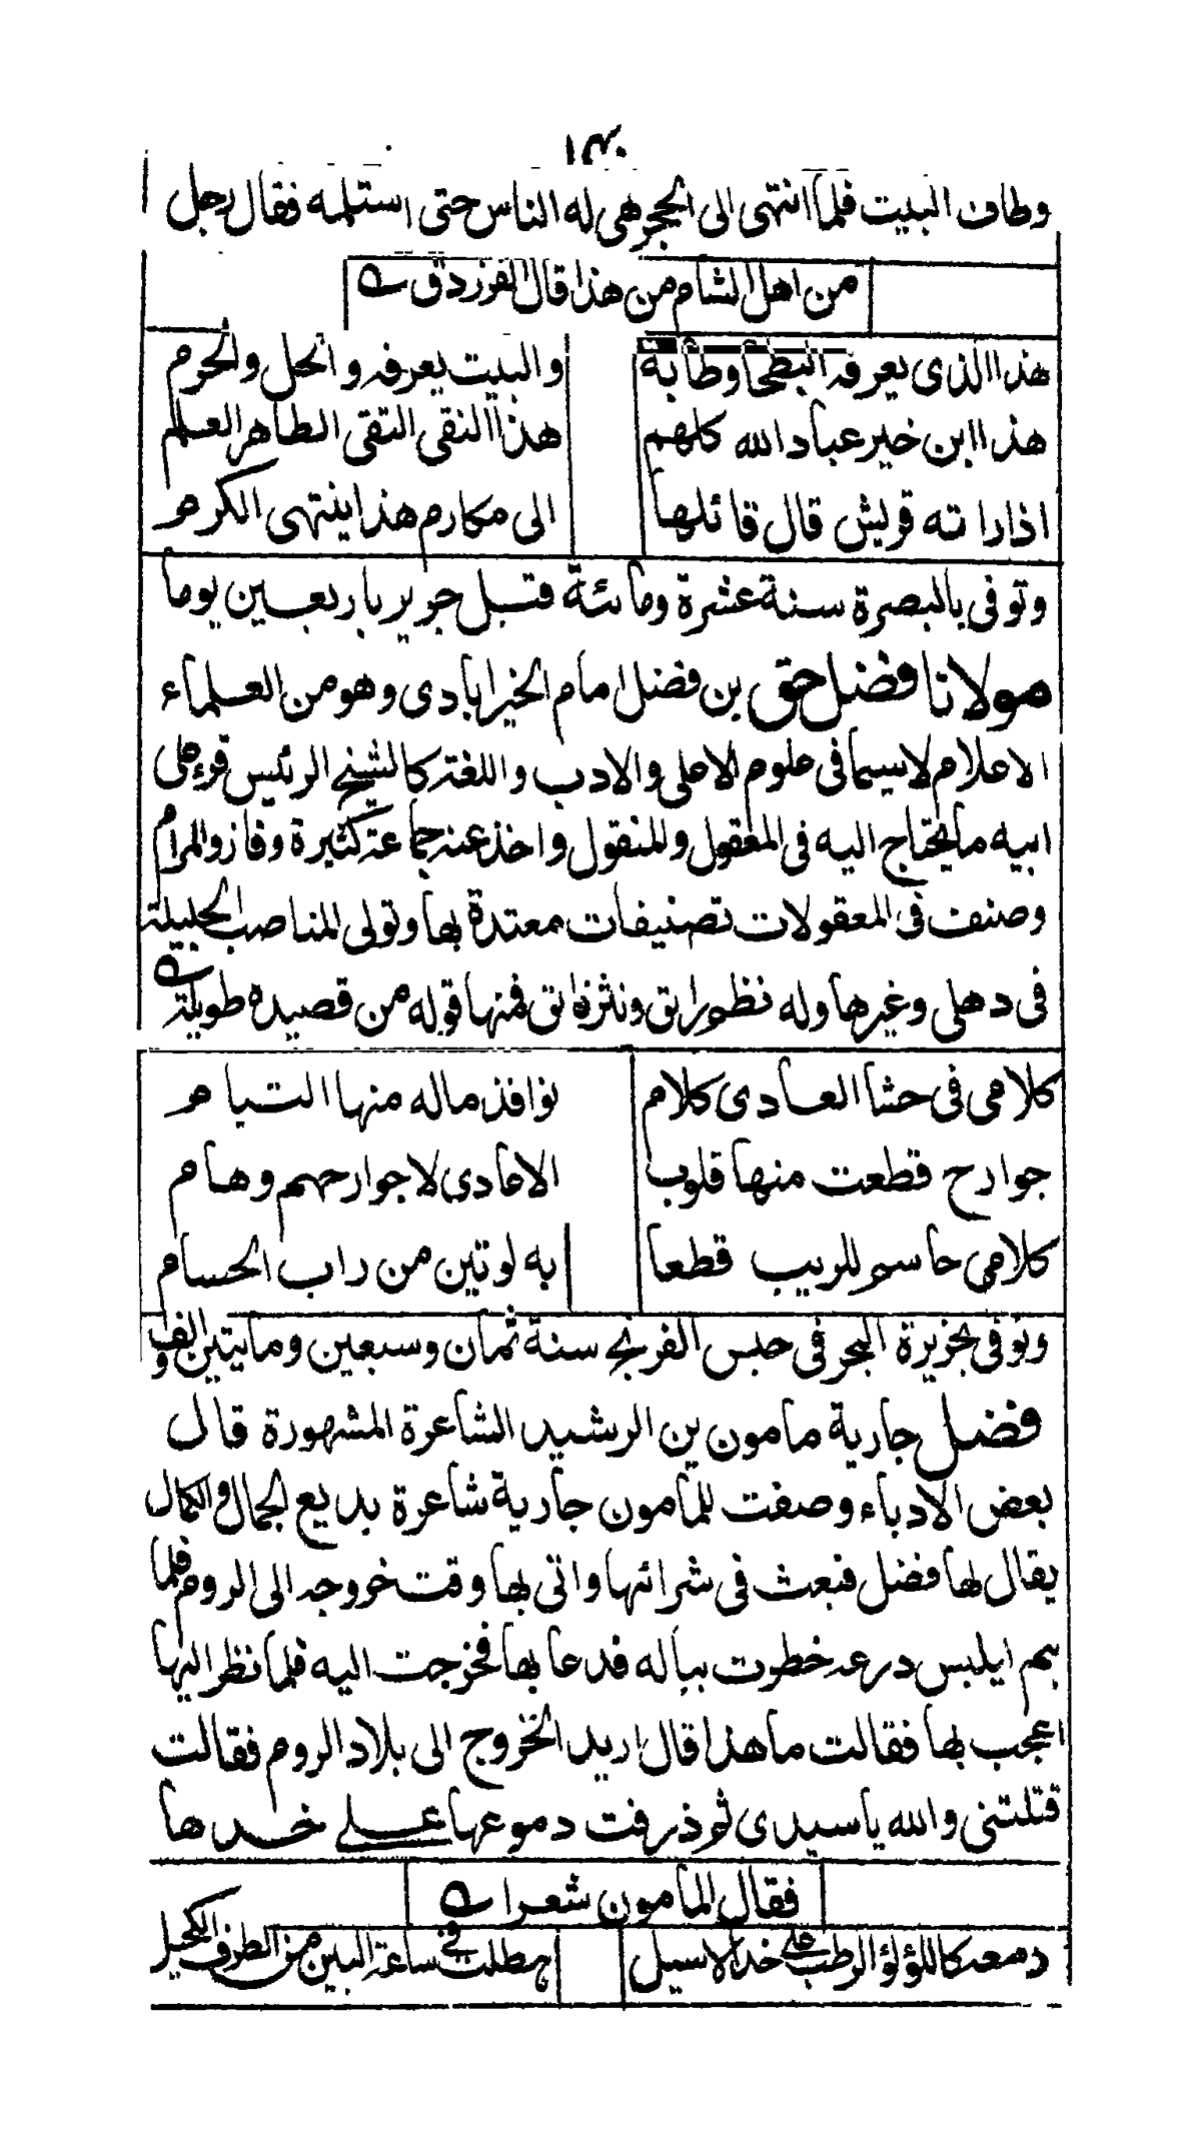 وطاف البيت فلما انتهى الى الحجر هى له الناس حتى استلمه فقال رجل
من اهل الشام من هذا قال الفرزدق
هذا الذى يعرفه البطحا وطأته والبيت يعرفه والحل والحرم
هذا ابن خير عباد الله كلهم هذا النقى التقى الطاهر العلم
اذا راته قريش قال قائلها الى مكارم هذا ينتهى الكرم
وتوفى بالبصرة سنة عشرة ومائة قبل جرير باربعين يوما
مولانا فضل حق بن فضل امام الخيرابادى وهو من العلماء
الاعلام لاسيما فى علوم الاعلى والادب واللغة كالشيخ الرئيس قرء على
ابيه ما يحتاج اليه فى المعقول والمنقول واخذ عنه جماعة كثيرة وفازوا المرام
وصنف فى المعقولات تصنيفات معتدة بها وتولى المناصب الجليلة
فى دهلى وغيرها وله نظم رايق ونثر فايق فمنها قوله من قصيده طويلة
كلامى فى حشا العادى كلام نوافذ ماله منها التيام
جوارح قطعت منها قلوب الاعادى لا جوارحهم وهام
كلامى حاسم للريب قطعا به لوتين من راب الحسام
وتوفى بجزيرة البحر فى حبس الفرنج سنة ثمان وسبعين ومايتين والف
فضل جارية مامون بن الرشيد الشاعرة المشهورة قال
بعض الادباء وصفت للمامون جارية شاعرة بديع الجمال والكمال
يقال لها فضل فبعث فى شرائها واتى بها وقت خروجه الى الروم فلما
هم ليلبس درعه خطرت بباله فدعا بها فخرجت اليه فلما نظر اليها
اعجب بها فقالت ما هذا قال اريد الخروج الى بلاد الروم فقالت
قتلتنى والله يا سيدى ثم ذرفت دموعها على خدها
فقال المامون شعرا
دمعه كاللؤلؤ الرطب على خد الاسيل هطلت فى ساعة البين من الطرف الكحيل